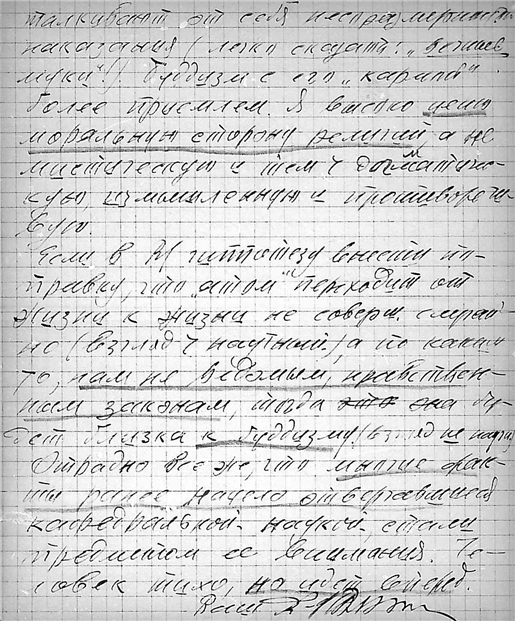 талкивают от себя несоразмерность
наказания (легко сказать: „вечные
муки“!). Буддизм с его „кармой“
более приемлем. Я высоко ценю
моральную сторону религий, а не
мистическую и тем ч догматиче-
скую, измышленную и противоречи-
вую.
Если в М гипотезу внести по-
правку, что „атом“ переходит от
жизни к жизни не соверш. случай-
но (взгляд ч научный), а по каким
то, нам не ведомым, нравствен-
ным законам, тогда это она бу-
дет близка к буддизму (взгляд не научн)
Отрадно все же, что многие фак-
ты ранее нацело отвергавшиеся
кафедральной наукой, стали
предметом ее внимания. Че-
ловек тихо, но идет вперед.
Ваш